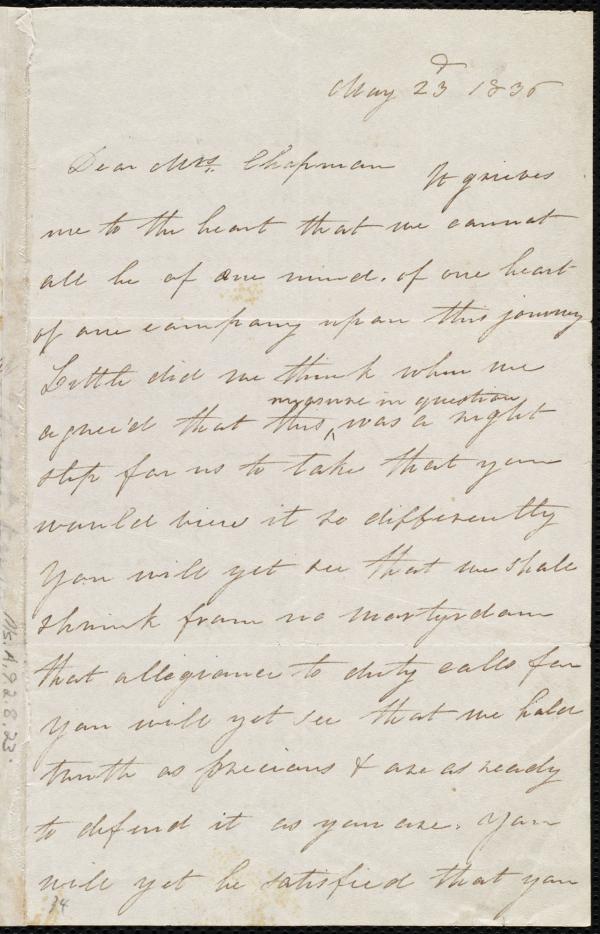 May 23d 1836
Dear Mrs. Chapman It grieves
me to the heart that we cannot
all be of one mind. of one heart
of one company upon this journey
Little did we think when we
measure in question
agree'd that this ^ was a right
step for us to take that you
would view it so differently
You will yet see that we shall
shrink from no martyrdom
that allegiance to duty calls for
You will yet see that we hold
truth as precious & are as ready
to defend it as you are. You
will yet be satisfied that you
34
Ms. A. 9.2 8. 23.